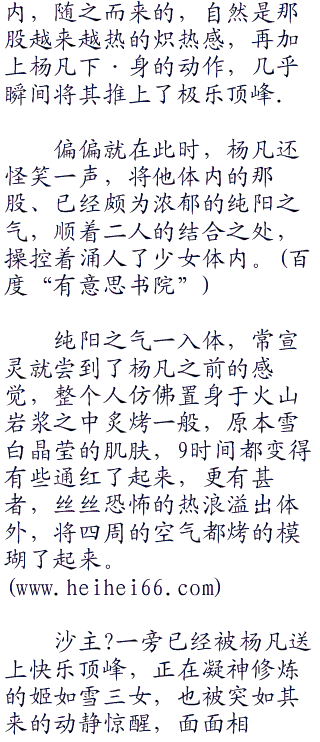 内，随之而来的，自然是那
股越来越热的炽热感，再加
上杨凡下·身的动作，几乎
瞬间将其推上了极乐顶峰.
偏偏就在此时，杨凡还
怪笑一声，将他体内的那
股、已经颇为浓郁的纯阳之
气，顺着二人的结合之处，
操控着涌人了少女体内。(百
度“有意思书院”)
纯阳之气一入体，常宣
灵就尝到了杨凡之前的感
觉，整个人仿佛置身于火山
岩浆之中炙烤一般，原本雪
白晶莹的肌肤，9时间都变得
有些通红了起来，更有甚
者，丝丝恐怖的热浪溢出体
外，将四周的空气都烤的模
瑚了起来。
(www.heihei66.com)
沙主?一旁已经被杨凡送
上快乐顶峰，正在凝神修炼
的姬如雪三女，也被突如其
来的动静惊醒，面面相